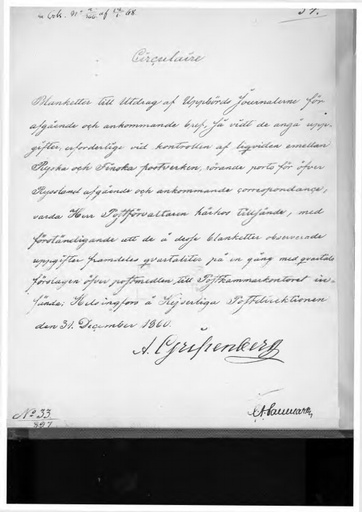 37.
Circulaire
Blanketter till Utdrag af Uppbörds Journalerne för
afgående och ankommande bref, så vidt de angå upp-
gifter, erforderlige vid kontrollen af liqviden emellan
Ryska och Finska postverken, rörande porto för öfver
Ryssland afgående och ankommande correspondance,
varda Herr Postförvaltaren härhos tillsände, med
förständigande att de å desse blanketter observerade
uppgifter framdeles qvartaliter på en gång med qvartals
förslagen öfver postmedlen till Postkammarkontoret in-
sändas. Helsingfors å Kejserliga Postdirektionen
den 31. December 1860.
A. Gripenberg
No 33
897